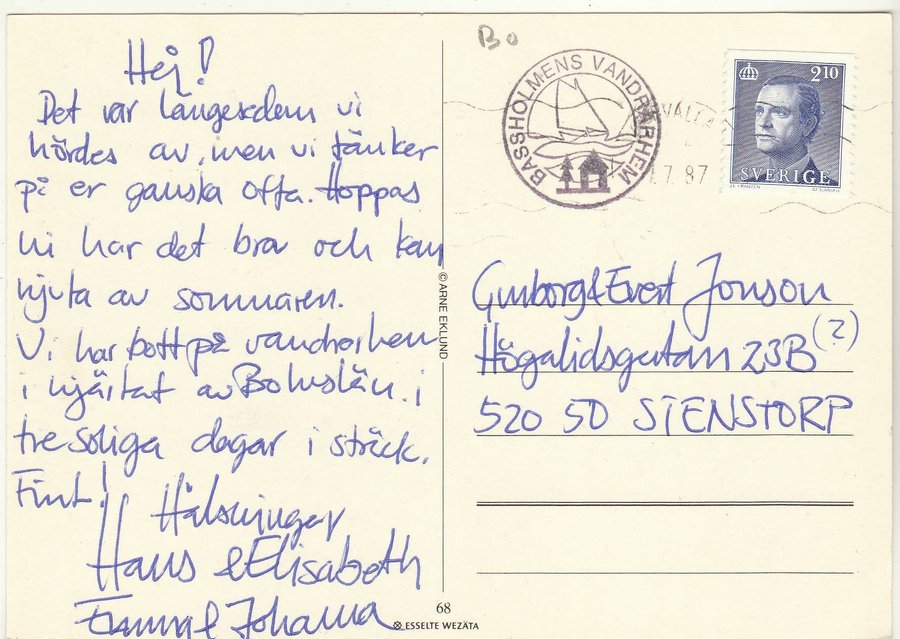 Hej!
Det var längesedan vi
hördes av, men vi tänker
på er ganska ofta. Hoppas
ni har det bra och kan
njuta av sommaren.
Vi har bott på vandrarhem
i hjärtat av Bohuslän i
tre soliga dagar i sträck.
Fint!
Hälsningar
Hans & Elisabeth
& Johanna
Bo
BASSHOLMENS VANDRARHEM
7 87
2.10
SVERIGE
© ARNE EKLUND
Gunborg & Evert Jonson
Högalidsgatan 23B (?)
520 50 STENSTORP
68
ESSELTE WEZÄTA